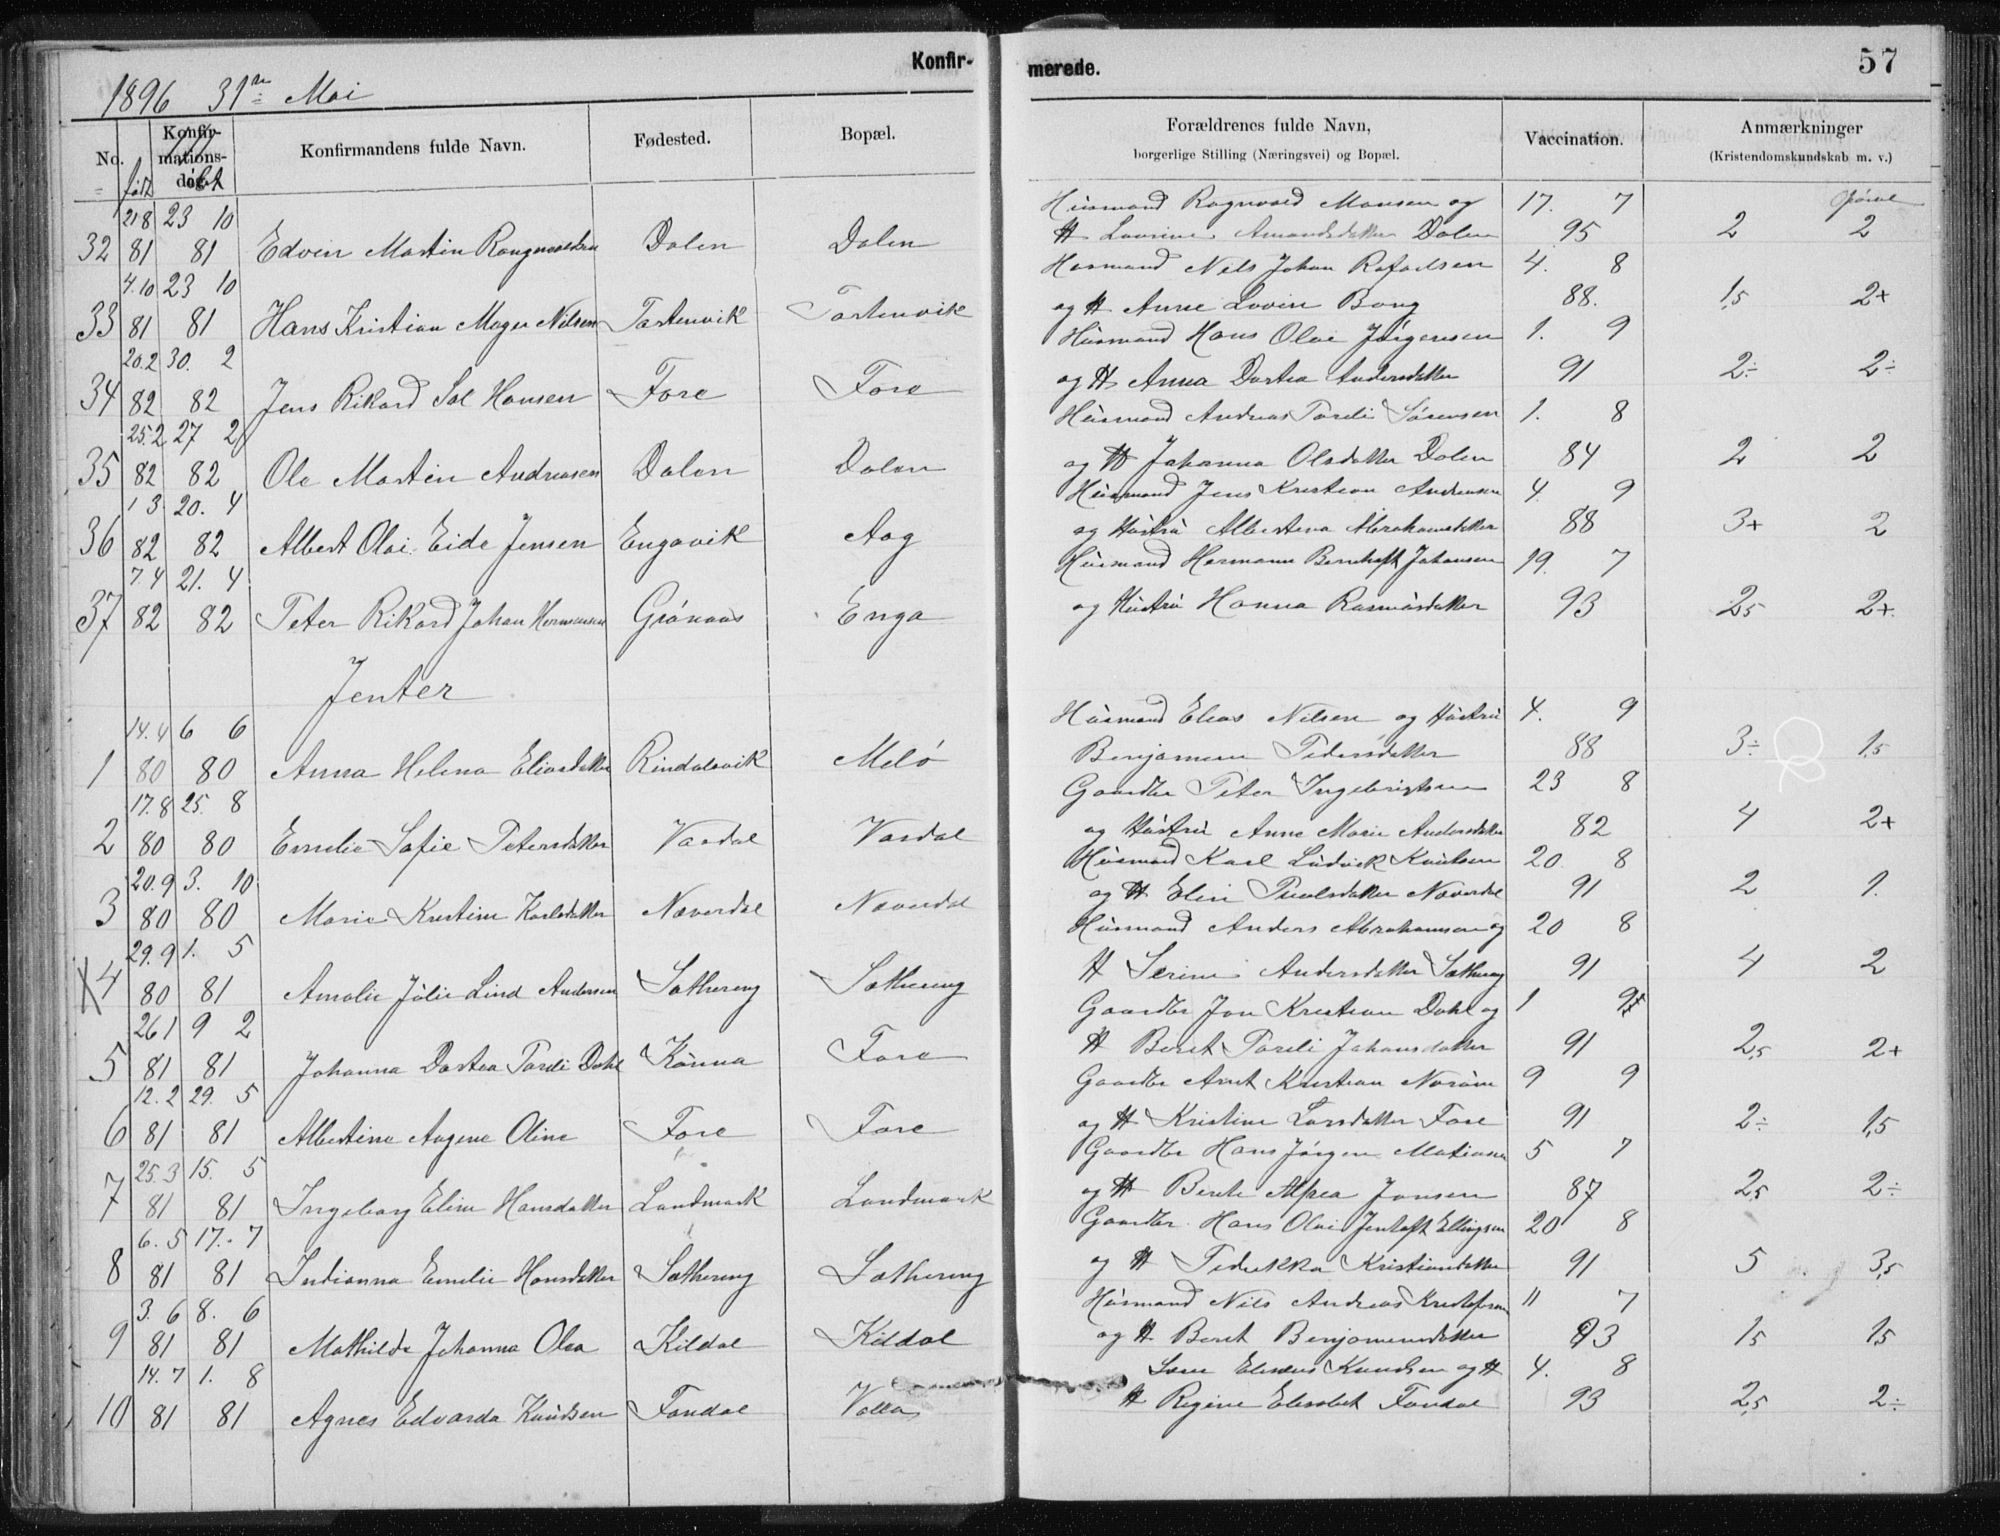 Konfir-
merede.
57
1896 31te Mai
No.
født
Konfir-
mations-
dag
døbt
Konfirmandens fulde Navn.
Fødested.
Bopæl.
Forældrenes fulde Navn,
borgerlige Stilling (Næringsvei) og Bopæl.
Vaccination.
Anmærkninger
(Kristendomskundskab m. v.)
21 8 23 10 Husmand Ragnvald Monsen og 17. 7
32 81 81 Edvin Martin Rangnvaldsen Dalen Dalen H Lovrine Amundsdatter Dalen 95 2 2
4.10 23 10 Husmand Nils Johan Rafaelsen 4. 8
33 81 81 Hans Kristian Mager Nilsen Tostenvik Tostenvik og H Anne Lovise Bang 88. 1,5 2+
20.2 30. 2 Husmand Hans Olai Jørgensen 1. 9
34 82 82 Jens Rikard Sol Hansen Fore Fore og H Anna Dortea Andersdatter 91 2÷ 2÷
25.2 27 2 Husmand Andreas Pareli Sørensen 1. 8
35 82 82 Ole Martin Andreasen Dalen Dalen og H Johanna Olsdatter Dalen 84 2 2
1 3 20. 4 Husmand Jens Kristian Andreasen 4. 9
36 82 82 Albert Olai Eide Jensen Engavik Aag og Hustru Albertina Abrahamsdatter 88 3+ 2
7 4 21. 4 Husmand Hermann Bernhoft Johansen 19. 7
37 82 82 Peter Rikard Johan Hermansen Grønaas Enga og Hustru Hanna Rasmusdatter 93 2,5 2+
Jenter
14.4 6 6 Husmand Elias Nilsen og Hustru 4. 9
1 80 80 Anna Helena Eliasdatter Rindalsvik Melø Benjamine Pedersdatter 88 3÷ 1,5
17.8 25. 8 Gaardbr Peter Ingebrigtsen 23 8
2 80 80 Emelie Sofie Petersdatter Vasdal Vasdal og Hustru Anne Marie Andersdatter 82 4 2+
20.9 3. 10 Husmand Karl Ludvik Knutsen 20. 8
3 80 80 Marie Kristine Karlsdatter Neverdal Neverdal og H Elen Poulsdatter Neverdal 91 2 1.
29.9 1. 5 Husmand Anders Abrahamsen og 20 8
X 4 80 81 Amalie Julie Lind Andersen Sathereng Sathereng H Serine Andersdatter Sathereng 91 4 2
26 1 9 2 Gaardbr Jon Kristian Dahl og 1 9
5 81 81 Johanna Dortea Pareli Dahl Kunna Fore H Beret Pareli Johansdatter 91 2,5 2+
12.2 29. 5 Gaardbr Arnt Kristian 9 9
6 81 81 Albertine Augene Oline Fore Fore og H Kristine Larsdatter Fore 91 2÷ 1,5
25.3 15. 5 Gaardbr Hans Jørgen Matiasen 5 7
7 81 81 Ingeborg Eline Hansdatter Landmark Landmark og H Berit Alfrea Jonsen 87 2,5 2÷
6. 5 17. 7 Gaardbr. Hans Olai Jentoft Ellingsen 20 8
8 81 81 Indianna Emelie Hansdatter Sathereng Sathereng og H Fredrikka Kristiansdatter 91 5 3,5
3. 6 8. 6 Husmand Nils Andreas Kristofersen 11 7
9 81 81 Mathilde Johanna Olea Kildal Kildal og H Beret Benjaminsdatter 93 1,5 1,5
14. 7 1. 8 Knudsen og H 4. 8
10 81 81 Agnes Edvarda Knudsen Fondal Valla H Regine Elisabet Fondal 93 2,5 2÷